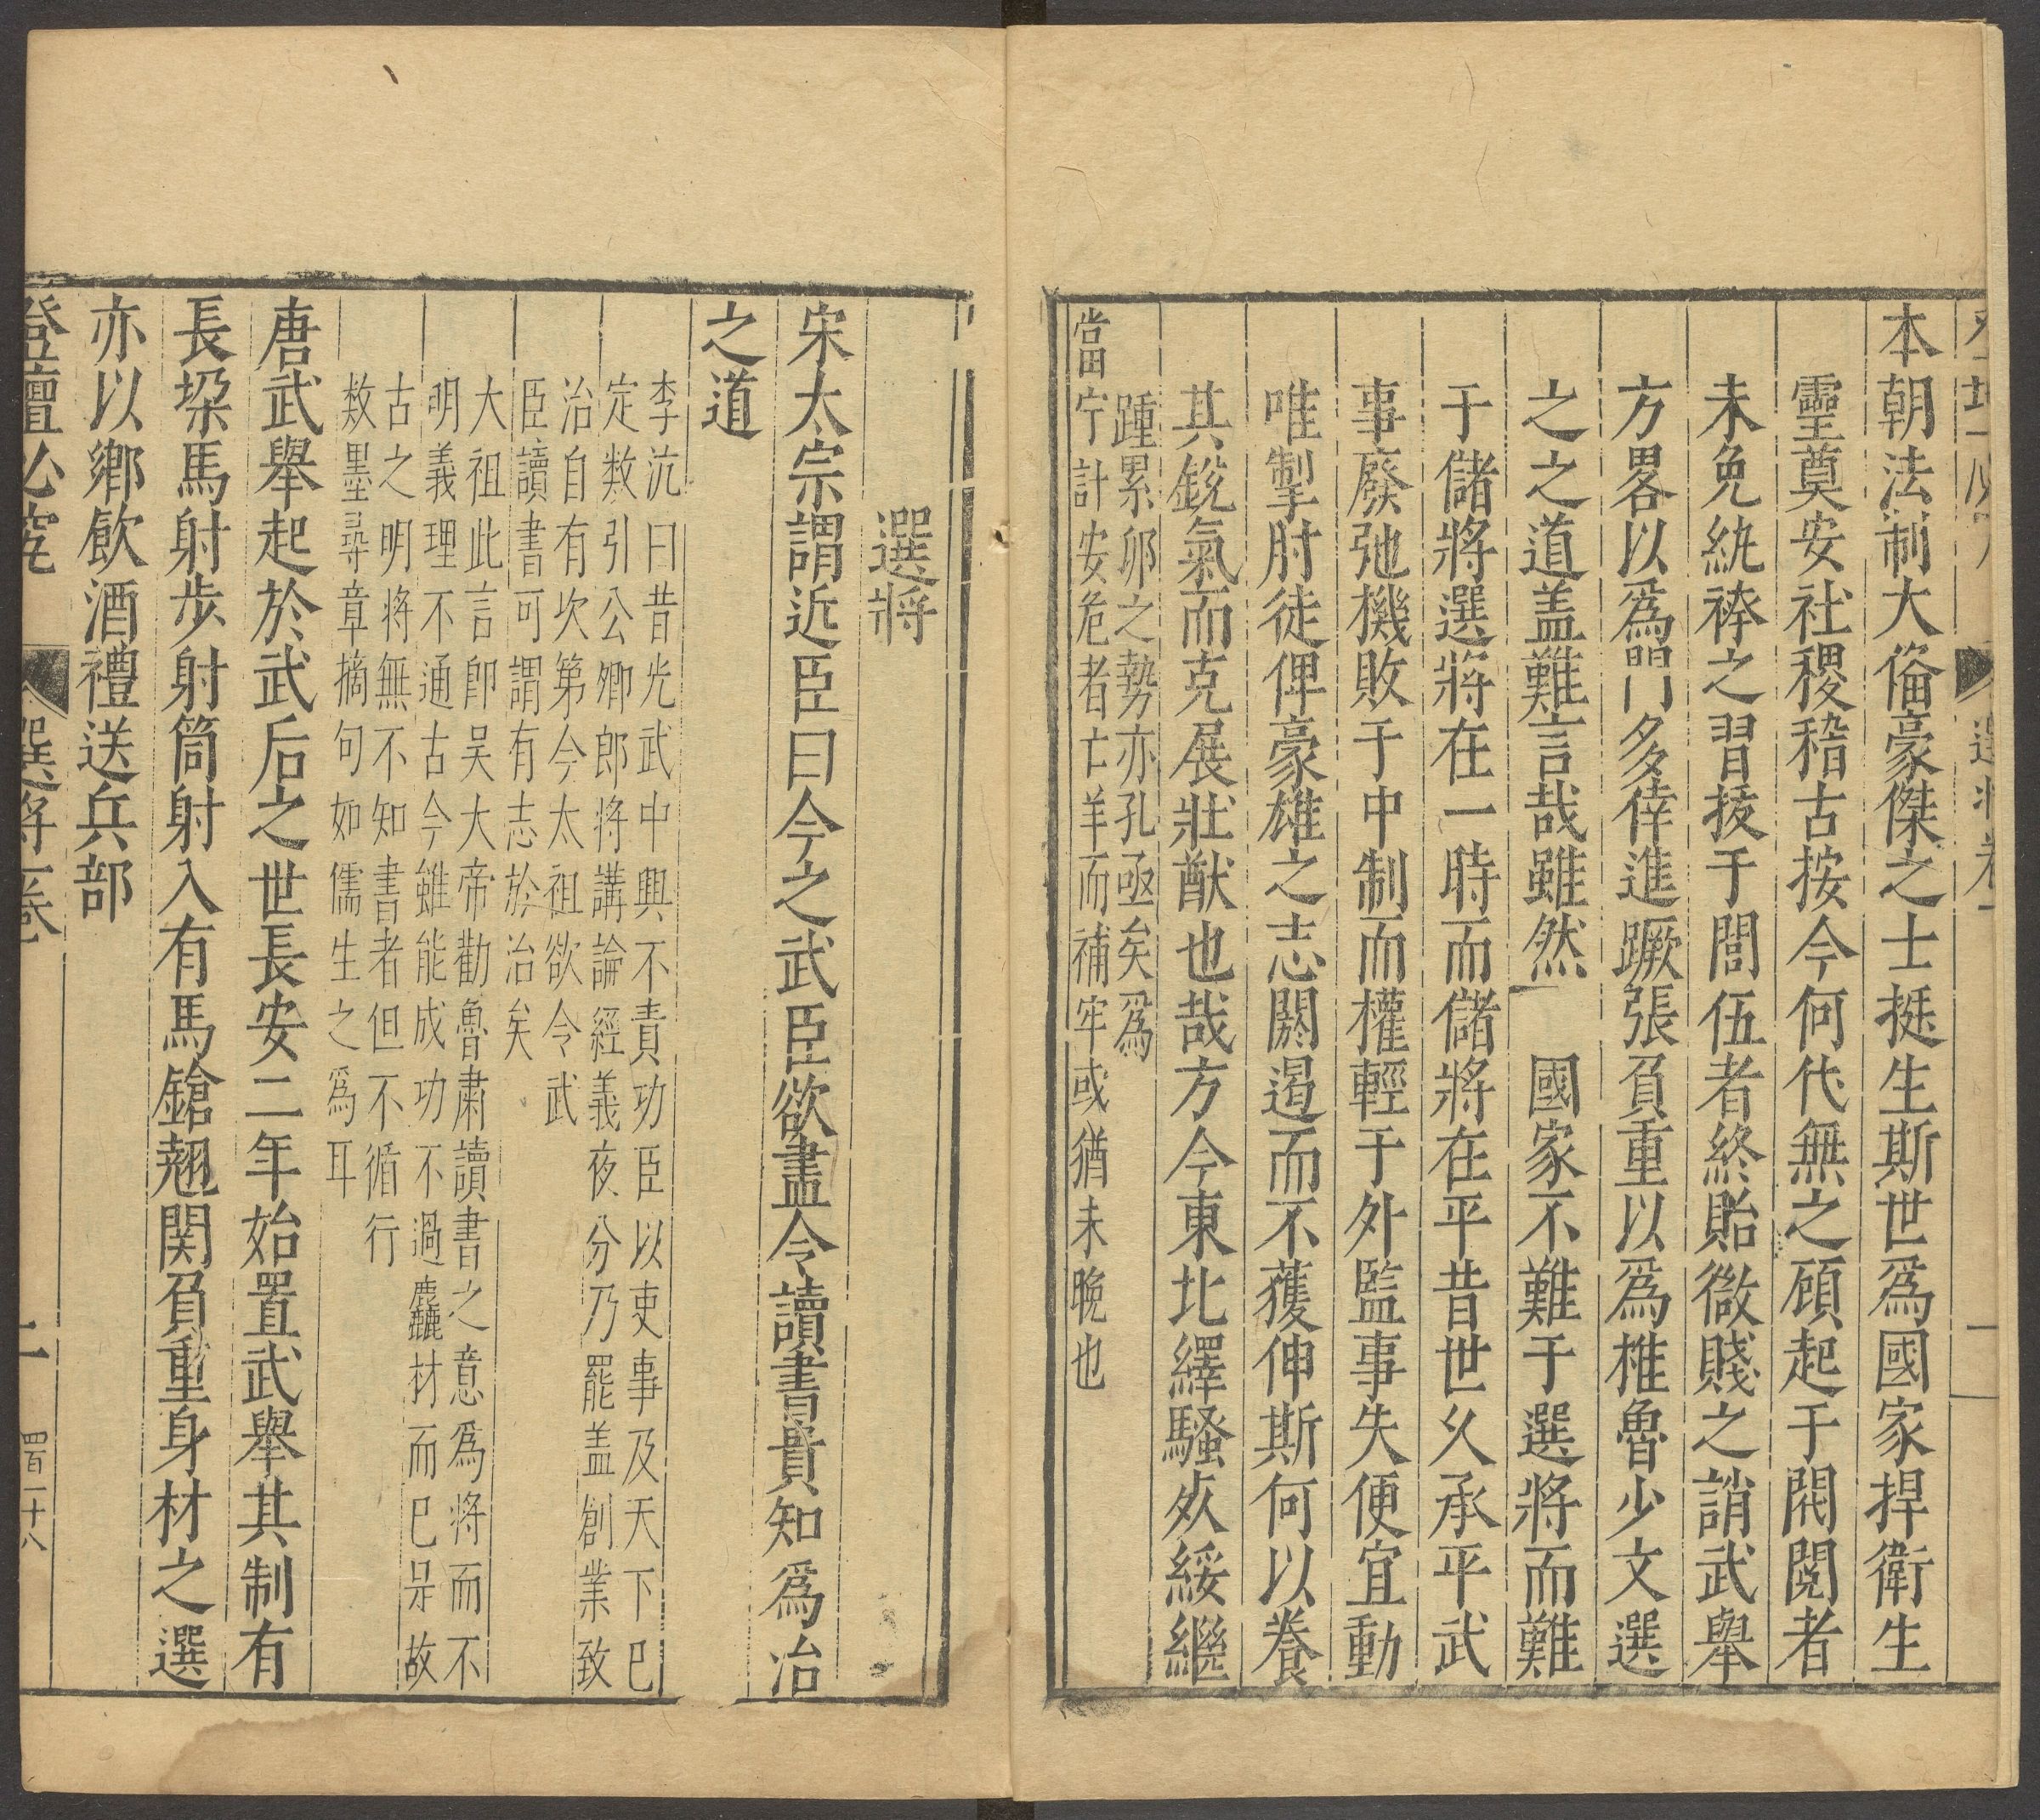 本朝法制大俻豪傑之士挺生斯世爲國家捍衛生
靈奠安社稷稽古按今何代無之顧起于閥閱者
未免紈袴之習拔于閭伍者終貽微賤之誚武舉
方畧以爲門多倖進蹶張負重以爲椎魯少文選
之之道盖難言哉雖然　國家不難于選將而難
于儲將選將在一時而儲將在平昔世久承平武
事廢弛機敗于中制而權輕于外監事失便宜動
唯掣肘徒俾豪雄之志閼遏而不獲伸斯何以養
其銳氣而克展壯猷也哉方今東北繹騷夾綏繼
踵累卵之勢亦孔亟矣爲
當宁計安危者亡羊而補牢或猶未晚也
選將
宋太宗謂近臣曰今之武臣欲盡令讀書貴知爲治
之道
李沆曰昔光武中興不責功臣以吏事及天下巳
定數引公卿郎將講論經義夜分乃罷盖創業致
治自有次第今太祖欲令武
臣讀書可謂有志於治矣
大祖此言卽吴大帝勸魯肅讀書之意爲將而不
明義理不通古今雖能成功不過麤材而巳是故
古之明將無不知書者但不循行
數墨尋章摘句如儒生之爲耳
唐武舉起於武后之世長安二年始置武舉其制有
長垜馬射步射筒射入有馬鎗翹関負重身材之選
亦以鄉飲酒禮送兵部
登壇必究　選將一卷　二　四百一十八